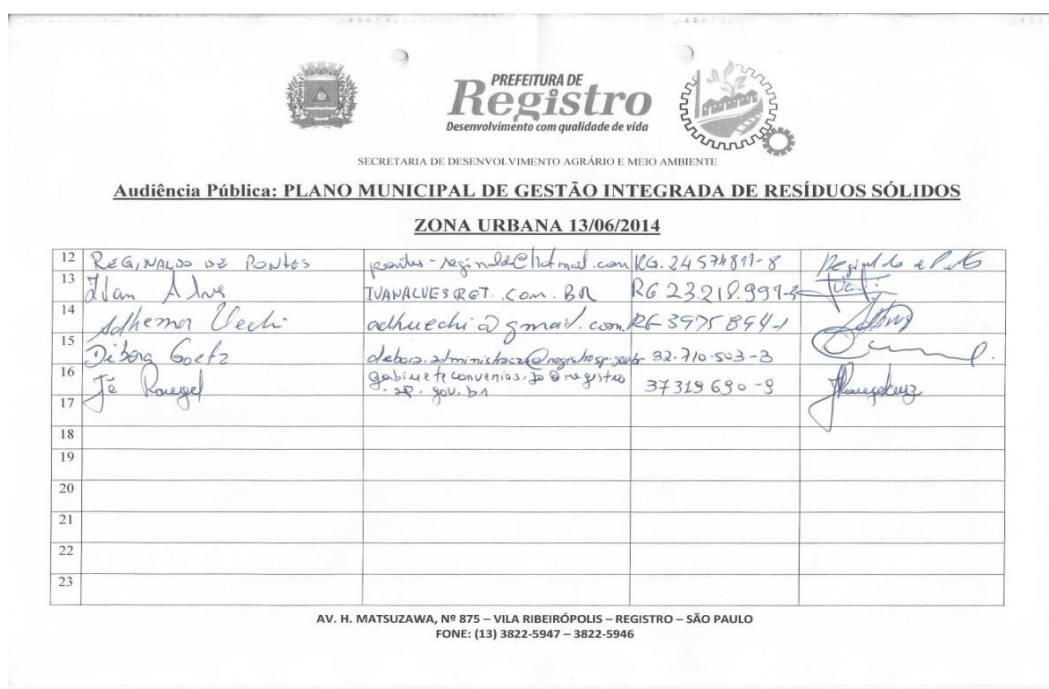 PREFEITURA DE
Registro
Desenvolvimento com qualidade de vida
SECRETARIA DE DESENVOLVIMENTO AGRÁRIO E MEIO AMBIENTE
Audiência Pública: PLANO MUNICIPAL DE GESTÃO INTEGRADA DE RESÍDUOS SÓLIDOS
ZONA URBANA 13/06/2014
12 REGINALDO DE PONTES pontes-reginaldo@hotmail.com RG. 24574811-8
13 Ivan Alves IVANALVESRGT.COM.BR RG 23.218.991-3
14 Adhemar Vechi adhvechi@gmail.com RG 3975894-1
15 Débora Goetz 32.710.503-3
16 Jê Rangel gabinete convenios.jo@registro 37319690-9
.sp.gov.br
17
18
19
20
21
22
23
AV. H. MATSUZAWA, Nº 875 – VILA RIBEIRÓPOLIS – REGISTRO – SÃO PAULO
FONE: (13) 3822-5947 – 3822-5946